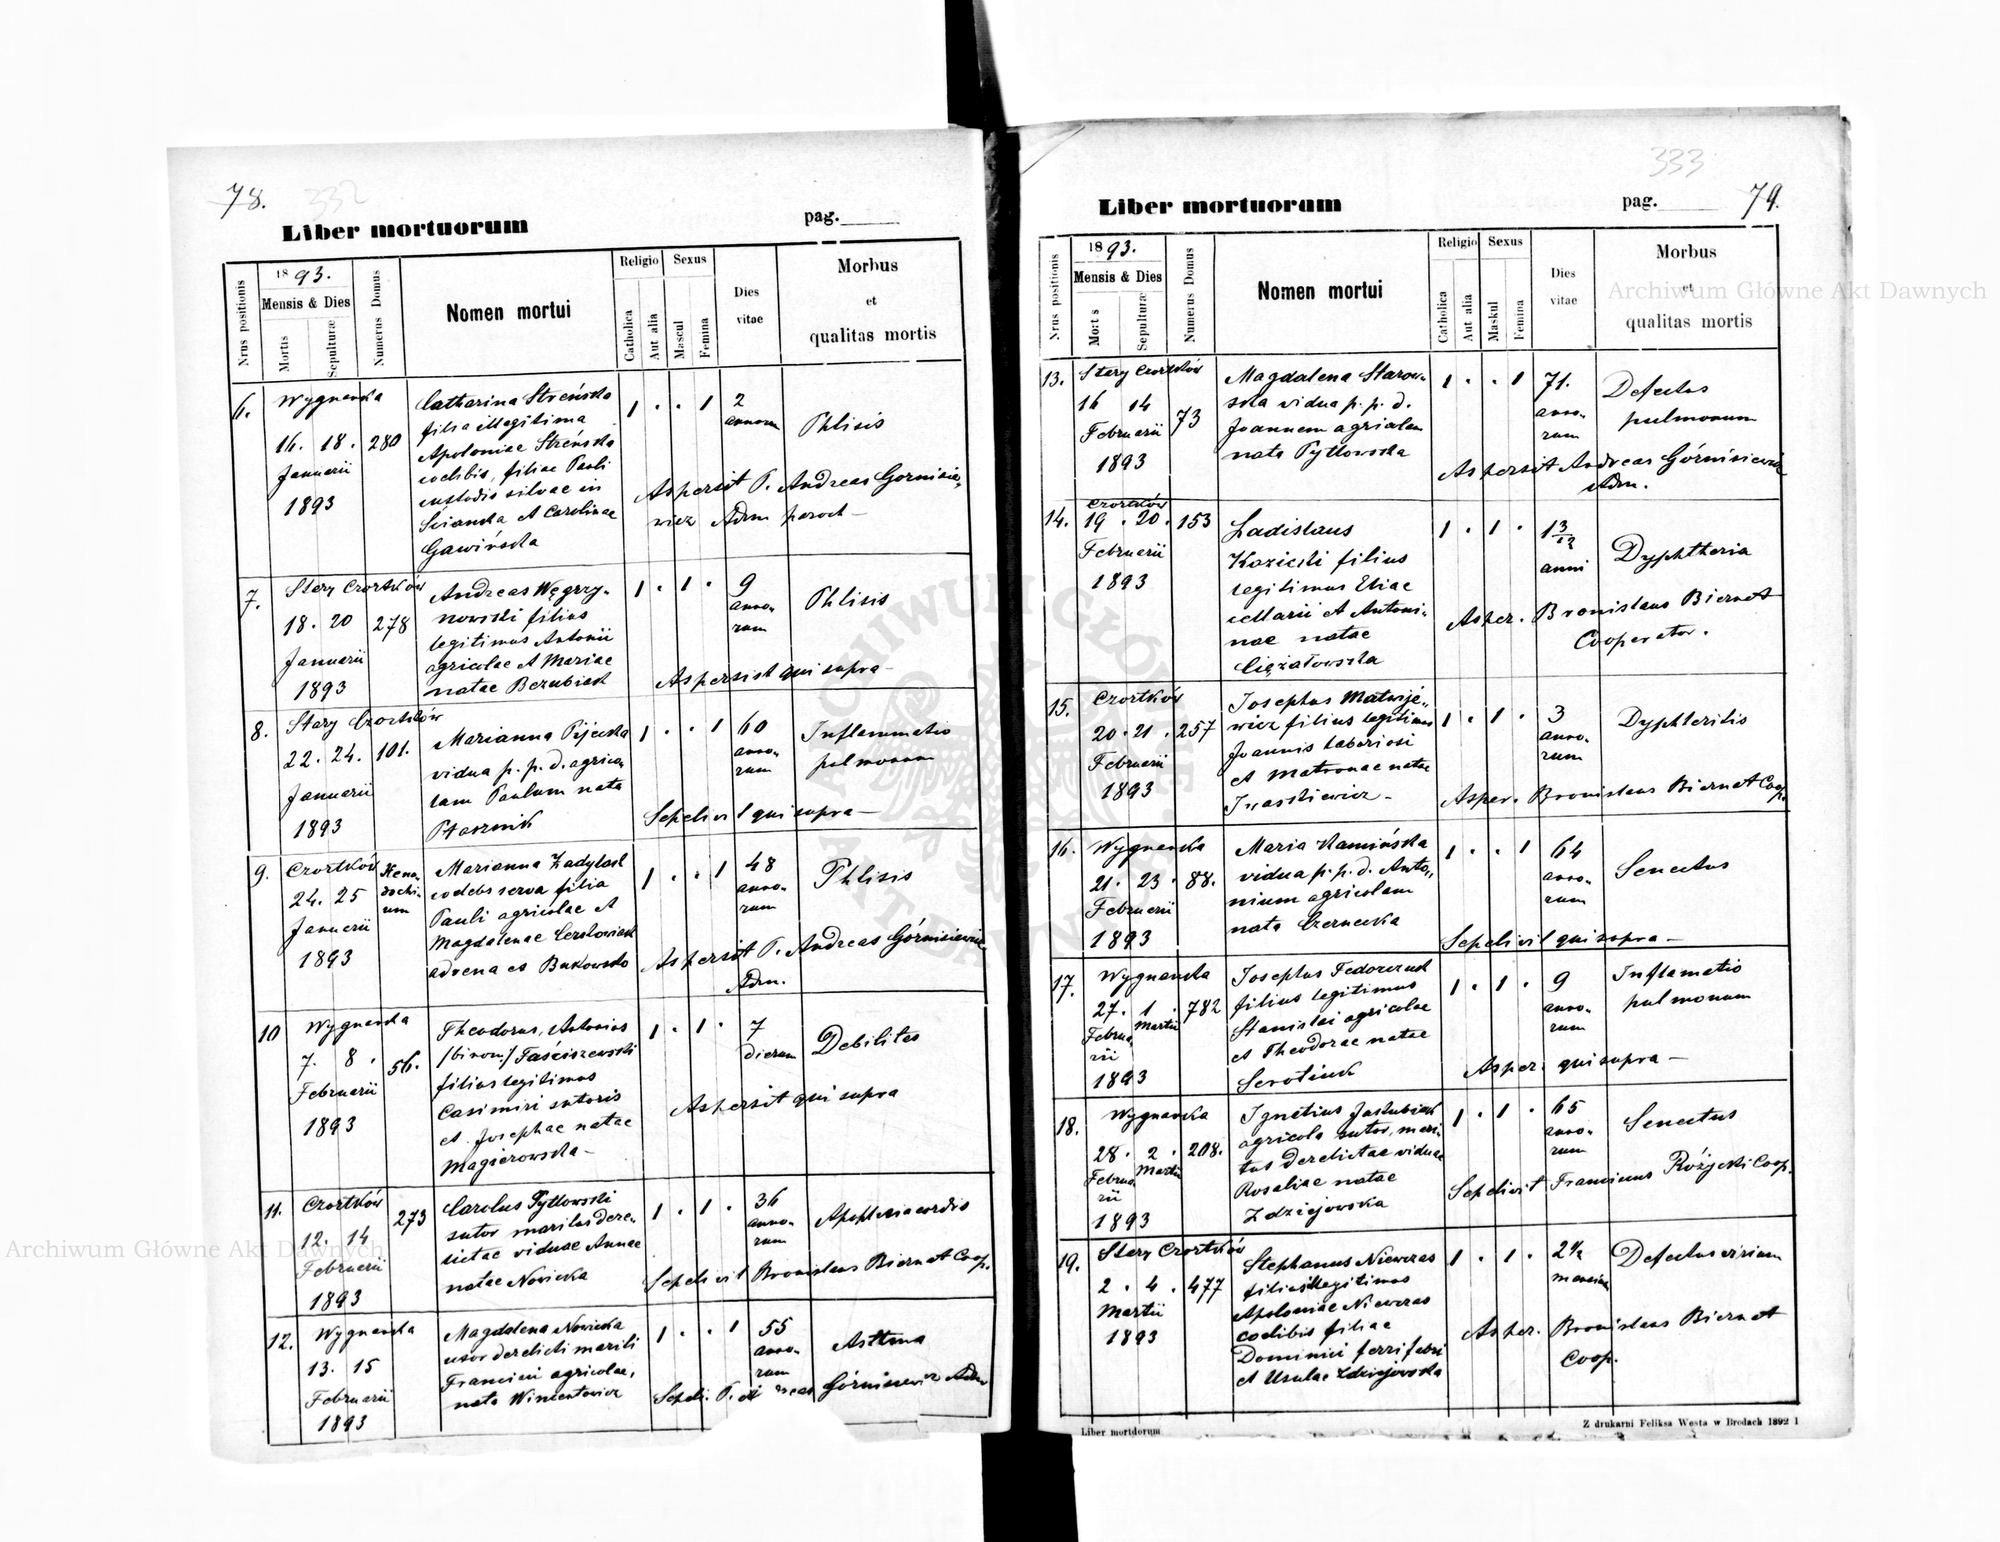 78.
332
Liber mortuorum
pag.
Nrus positionis
1893.
Mensis & Dies
Mortis
Sepulturæ
Numerus Domus
Nomen mortui
Religio
Catholica
Aut alia
Sexus
Mascul
Femina
Dies
vitae
Morbus
et
qualitas mortis
6.
Wygnanka
16. 18. 280
Januarii
1893
Catharina Streńska
filia illegitima
Apoloniae Streńska
coelibis, filiae Pauli
custodis silvae in
et Carolinae
Gawińska
1 . . 1
2
annorum
Phtisis
Aspersit P. Andreas Górnisie-
wicz Adm paroch -
7.
Stary Czortków
18. 20 278
Januarii
1893
Andreas Węgrzy-
nowski filius
legitimus Antonii
agricolae et Mariae
natae Bezubiak
1 . 1 .
9
anno-
rum
Phtisis
Aspersit qui supra -
8.
Stary Czortków
22. 24. 101.
Januarii
1893
Marianna
vidua p. p. d. agrico-
lam Paulum nata
Ptasznik
1 . . 1
60
anno-
rum
Inflammatio
pulmonum
Sepelivit qui supra -
9.
Czortków
24. 25
Januarii
1893
Marianna Zadylak
coelebs serva filia
Pauli agricolae et
Magdalenae
advena ex Bukowsko
1 . . 1
48
anno-
rum
Phtisis
Aspersit P. Andreas Górnisiewicz
Adm.
10
Wygnanka
7. 8. 56.
Februarii
1893
Theodorus, Antonius
/binom./ Taściszewski
filius legitimus
Casimiri sutoris
et Josephae natae
Magierowska -
1 . 1 .
7
dierum
Debilitas
Aspersit qui supra
11.
Czortków
12. 14 273
Februarii
1893
Carolus Pytlowski
sutor maritus dere-
lictae viduae Annae
natae Nowicka
1 . 1 .
36
anno-
rum
Apoplexia cordis
Sepelivit Bronislaus Biernat Coop.
12.
Wygnanka
13. 15
Februarii
1893
Magdalena Nowicka
uxor derelicti mariti
Francisci agricolae,
nata Wincentowicz
1 . . 1
55
anno-
rum
Asthma
Sepeli. P. Górnisiewicz Adm
333
Liber mortuorum
pag.
79.
Nrus positionis
1893.
Mensis & Dies
Mort s
Sepulturæ
Numerus Domus
Nomen mortui
Religio
Catholica
Aut alia
Sexus
Maskul
Femina
Dies
vitae
Morbus
et
qualitas mortis
13.
Stary Czortków
16 14 73
Februarii
1893
Magdalena Starow-
ska vidua p. p. d.
Joannem agricolam
nata Pytlowska
1 . . 1
71.
anno-
rum
Defectus
pulmonum
Aspersit Andreas Górnisiewicz
Adm.
14.
Czortków
19 . 20 . 153
Februarii
1893
Ladislaus
Kozicki filius
legitimus Eliae
et Antoni-
nae natae
Ciężałowska
1 . 1 .
1 3/12
anni
Dyphtheria
Asper. Bronislaus Biernat
Cooperator.
15.
Czortków
20 . 21 . 257
Februarii
1893
Josephus Matwije-
wicz filius legitimus
Joannis
et Matronae natae
Iwaszkiewicz -
1 . 1 .
3
anno-
rum
Dyphteritis
Asper. Bronislaus Biernat Coop.
16.
Wygnanka
21. 23 . 88.
Februarii
1893
Maria Kamińska
vidua p. p. d. Anto-
nium agricolam
nata Czernecka
1 . . 1
64
anno-
rum
Senectus
Sepelivit qui supra -
17.
Wygnanka
27. 1 . 782
Februa-
rii
Martii
1893
Josephus Fedorczuk
filius legitimus
Stanislai agricolae
et Theodorae natae
Serotiuk
1 . 1 .
9
anno-
rum
Inflamatio
pulmonum
Asper. qui supra -
18.
Wygnanka
28 . 2 . 208.
Februa-
rii
Martii
1893
Ignatius Jakubiak
agricola sutor, mari-
tus derelictae viduae
Rosaliae natae
Zdziejowska
1 . 1 .
65
anno-
rum
Senectus
Sepelivit Franciscus Różycki Coop.
19.
Stary Czortków
2 . 4 . 477
Martii
1893
Stephanus Niewczas
filius illegitimus
Apoloniae Niewczas
coelibis filiae
Dominici ferri fabri
et Ursulae Zdziejowska
1 . 1 .
2 1/2
mensium
Defectus virium
Asper. Bronislaus Biernat
Coop.
Liber mortdorum
Z drukarni Feliksa Westa w Brodach 1892 1
Archiwum Główne Akt Dawnych
Archiwum Główne Akt Dawnych